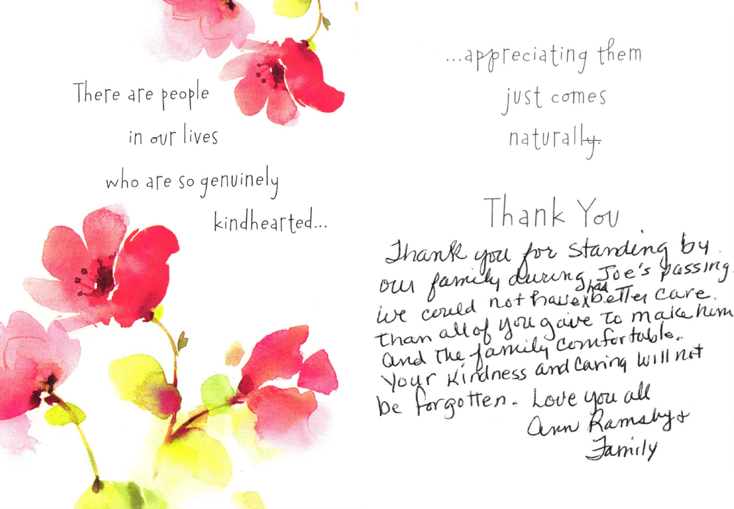 There are people
in our lives
who are so genuinely
kindhearted...
...appreciating them
just comes
naturally.
Thank You
Thank you for standing by
our family during Joe's passing.
we could not have had better care.
than all of you gave to make him
and the family comfortable.
Your kindness and caring will not
be forgotten. Love you all
Ann Ramsby &
Family